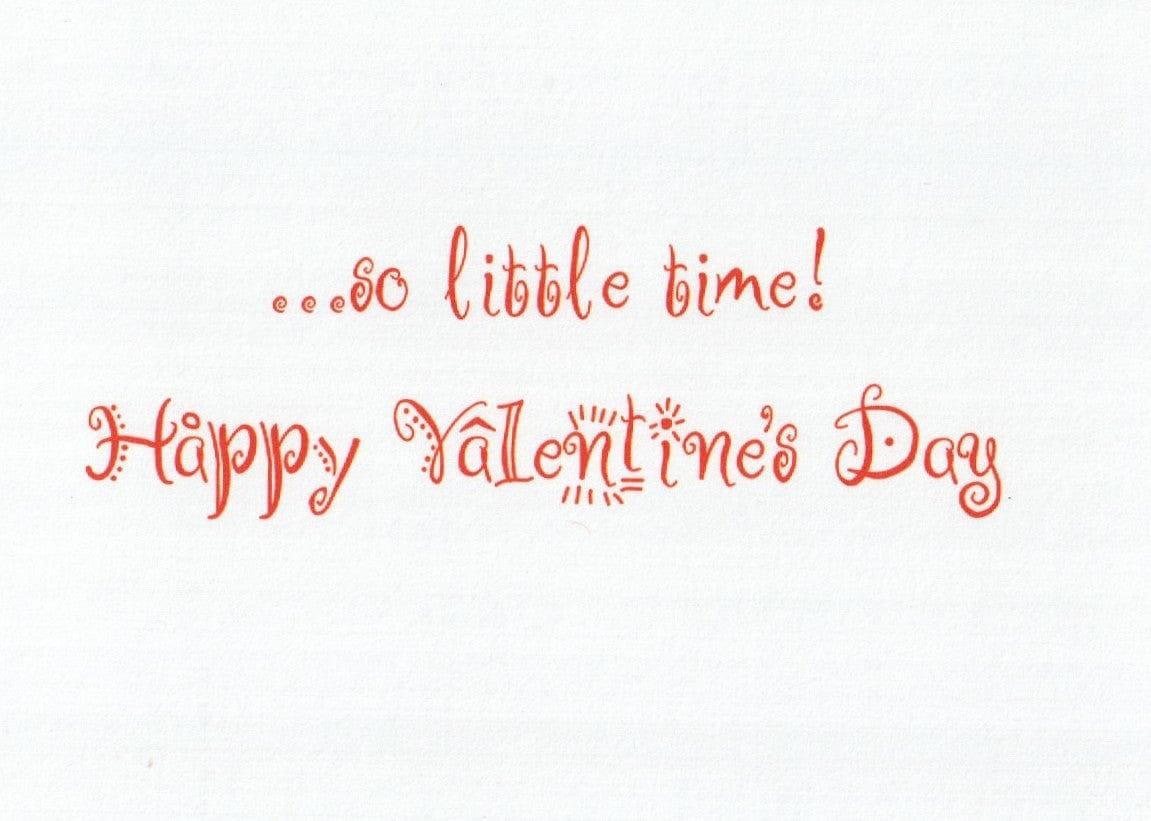 ...so little time!
Happy Valentine's Day